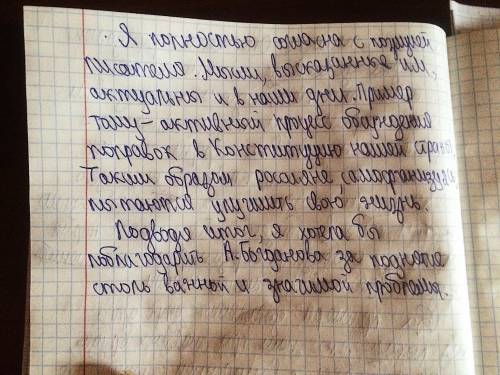 Я полностью согласна с позицией
писателя. Мысли, высказанные им,
актуальны и в наши дни. Пример
тому - активный процесс обсуждения
поправок в Конституцию нашей страны.
Таким образом россияне, самоорганизуясь,
пытаются улучшить свою жизнь.
Подводя итог, я хотела бы
поблагодарить А.Богданова за поднятие
столь важной и значимой проблемы.